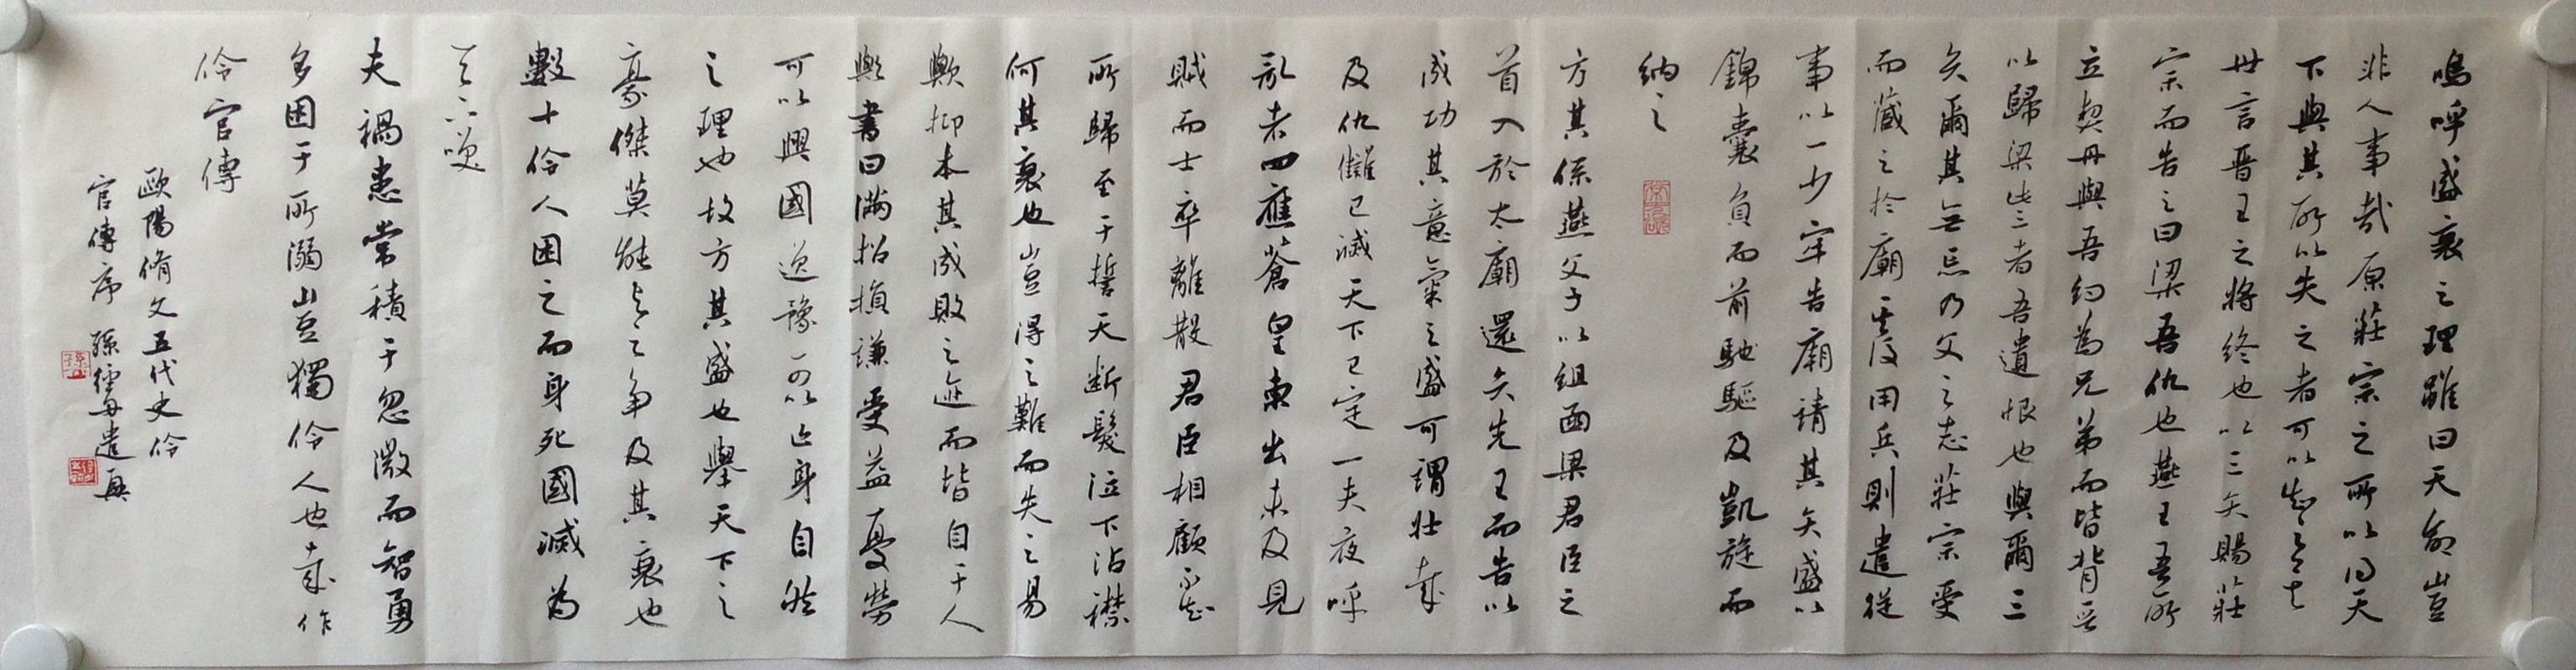 嗚呼盛衰之理雖曰天命豈
非人事哉原莊宗之所以得天
下與其所以失之者可以知之矣
世言晉王之將終也以三矢賜莊
宗而告之曰梁吾仇也燕王吾所
立契丹與吾約為兄弟而皆背晉
以歸梁此三者吾遺恨也與爾三
矢爾其無忘乃父之志莊宗受
而藏之於廟其後用兵則遣從
事以一少牢告廟請其矢盛以
錦囊負而前馳驅及凱旋而
納之
方其係燕父子以組函梁君臣之
首入於太廟還矢先王而告以
成功其意氣之盛可謂壯哉
及仇讎已滅天下已定一夫夜呼
亂者四應蒼皇東出未及見
賊而士卒離散君臣相顧不知
所歸至于誓天斷髮泣下沾襟
何其衰也豈得之難而失之易
歟抑本其成敗之迹而皆自于人
歟書曰滿招損謙受益憂勞
可以興國逸豫可以亡身自然
之理也故方其盛也舉天下之
豪傑莫能與之爭及其衰也
數十伶人困之而身死國滅為
天下笑
夫禍患常積于忽微而智勇
多困于所溺豈獨伶人也哉作
伶官傳
歐陽脩文五代史伶
官傳序 孫